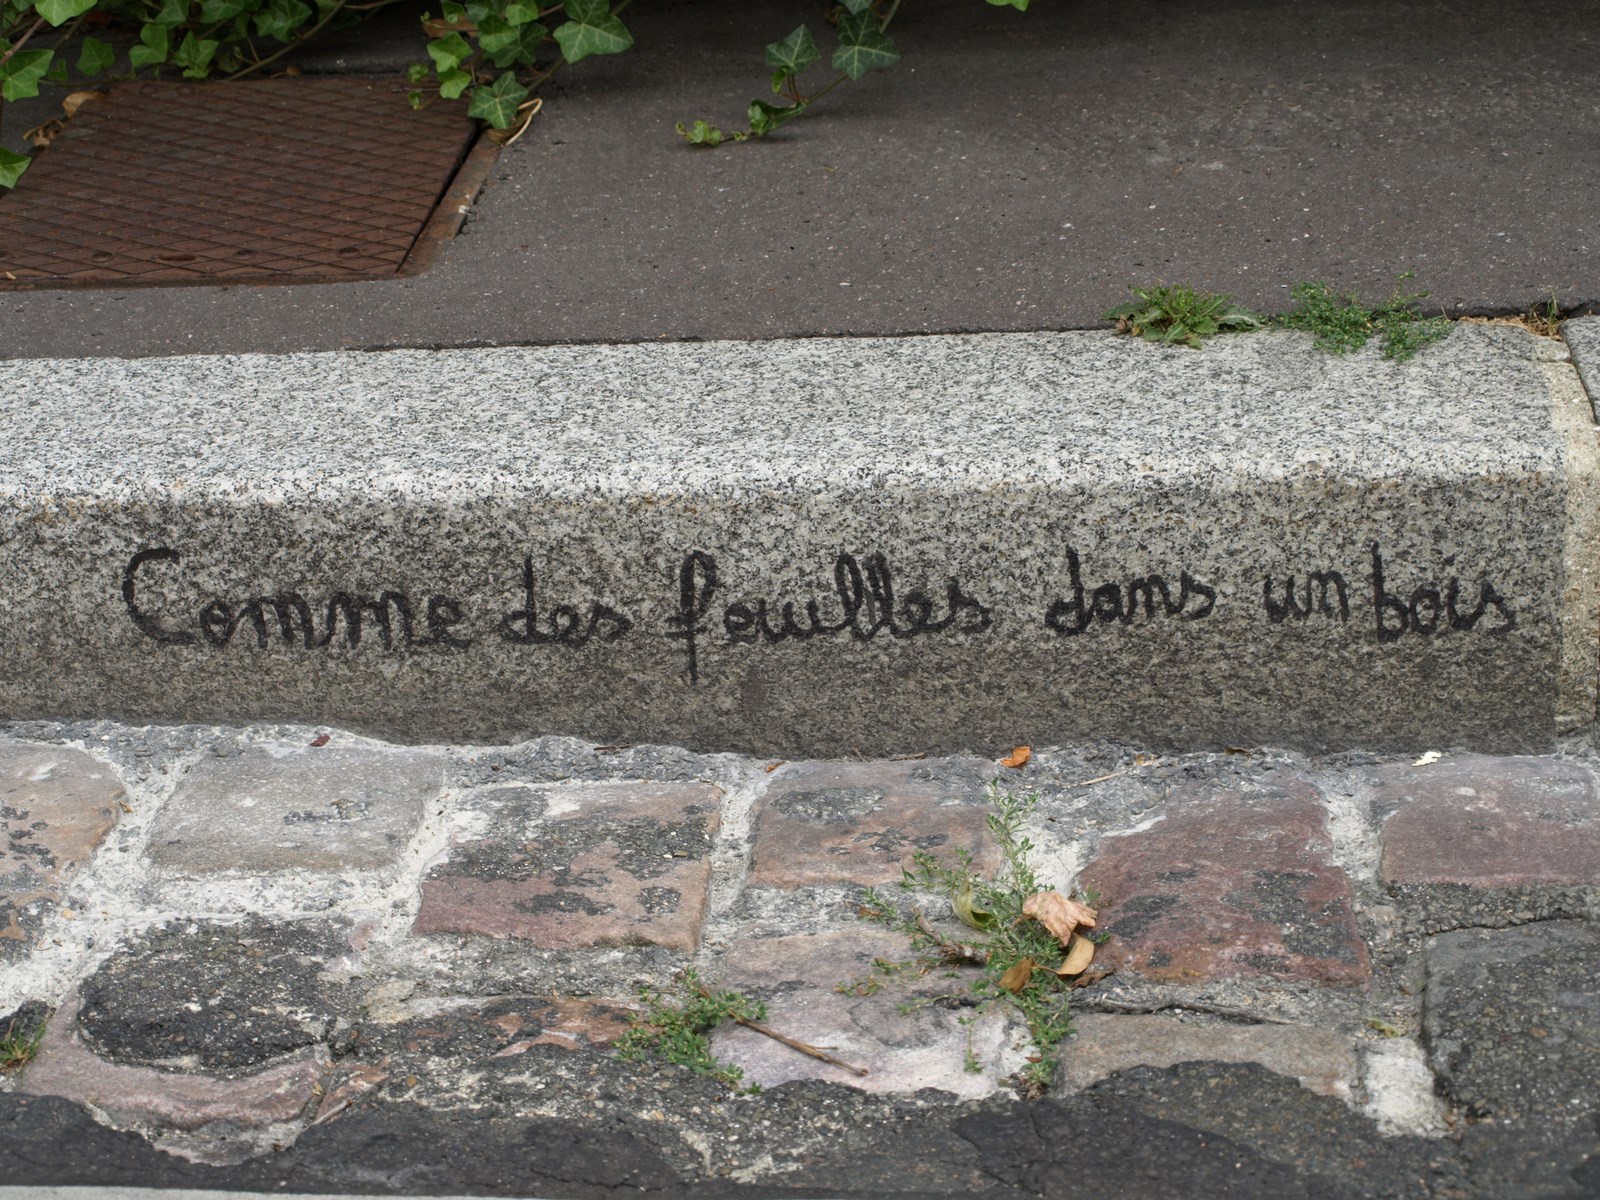 Comme des feuilles dans un bois